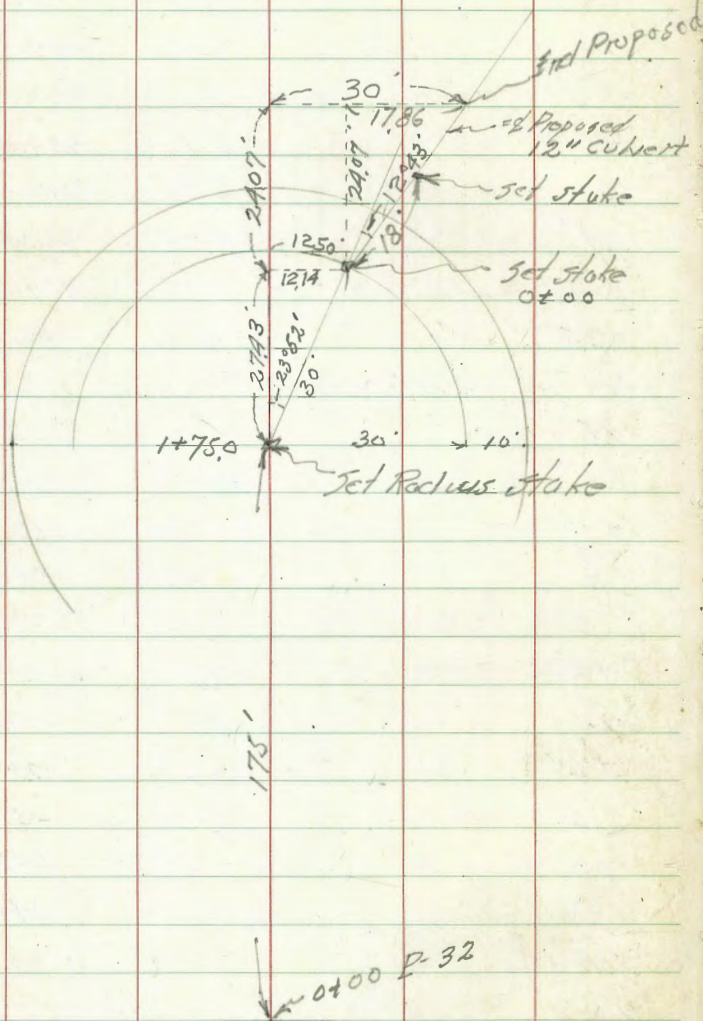 End Proposed
30'
17.86
⅊ Proposed
12" Culvert
24.07'
24.07'
12°43'
18'
set stake
12.50'
12.14
Set stake
0+00
27.43'
23°52'
30'
1+75.0
30'
10'
Set Radius stake
175'
0+00 P-32